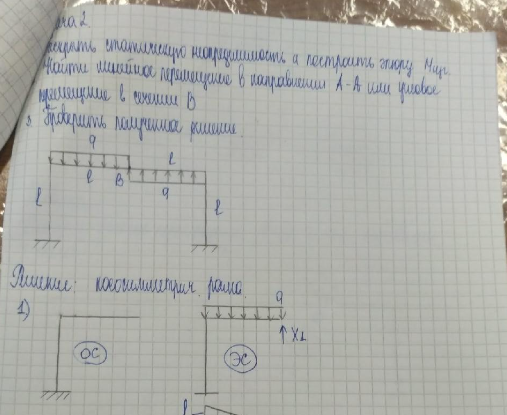 ача 2
скрыть статическую неопределимость и построить эпюру Mизг.
Найти линейное перемещение в направлении А-А или угловое
перемещение в сечении В
3. Проверить полученное решение.
q
l
l
B
q
l
l
Решение: кососимметрич. рама.
1)
q
ОС
ЭС
↑ X1
l